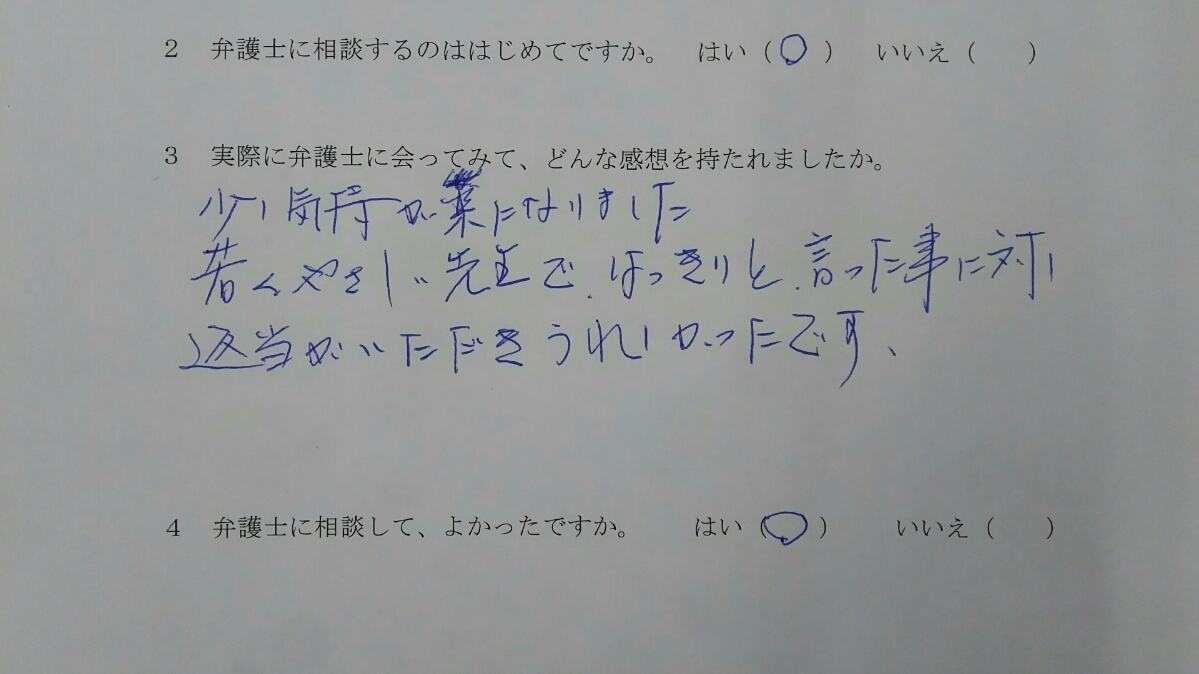 2 弁護士に相談するのははじめてですか。 はい(○) いいえ( )
3 実際に弁護士に会ってみて、どんな感想を持たれましたか。
少し気持が楽になりました
若くやさしい先生で、はっきりと、言った事に対し
返当がいただきうれしかったです、
4 弁護士に相談して、よかったですか。 はい(○) いいえ( )